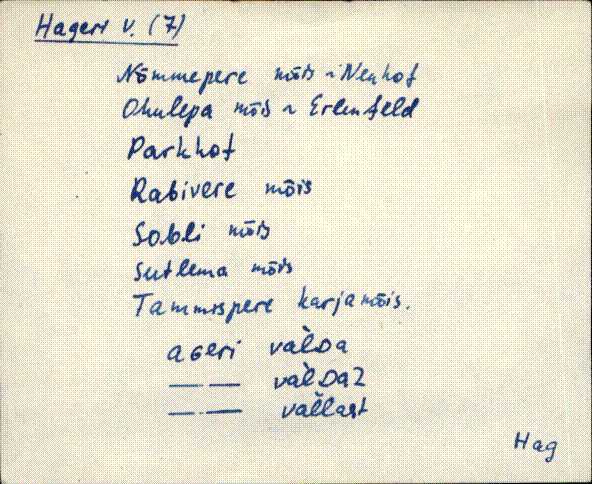 Hageri v. (7)
Nõmmepere mõis ~ Neuhof
Ohulepa mõis ~ Erlenfeld
Parkhof
Rabivere mõis
Sobli mõis
Sutlema mõis
Tammispere karjamõis.
aGeri vàlDa
—·— vàlDa2
—·— vàllast
Hag